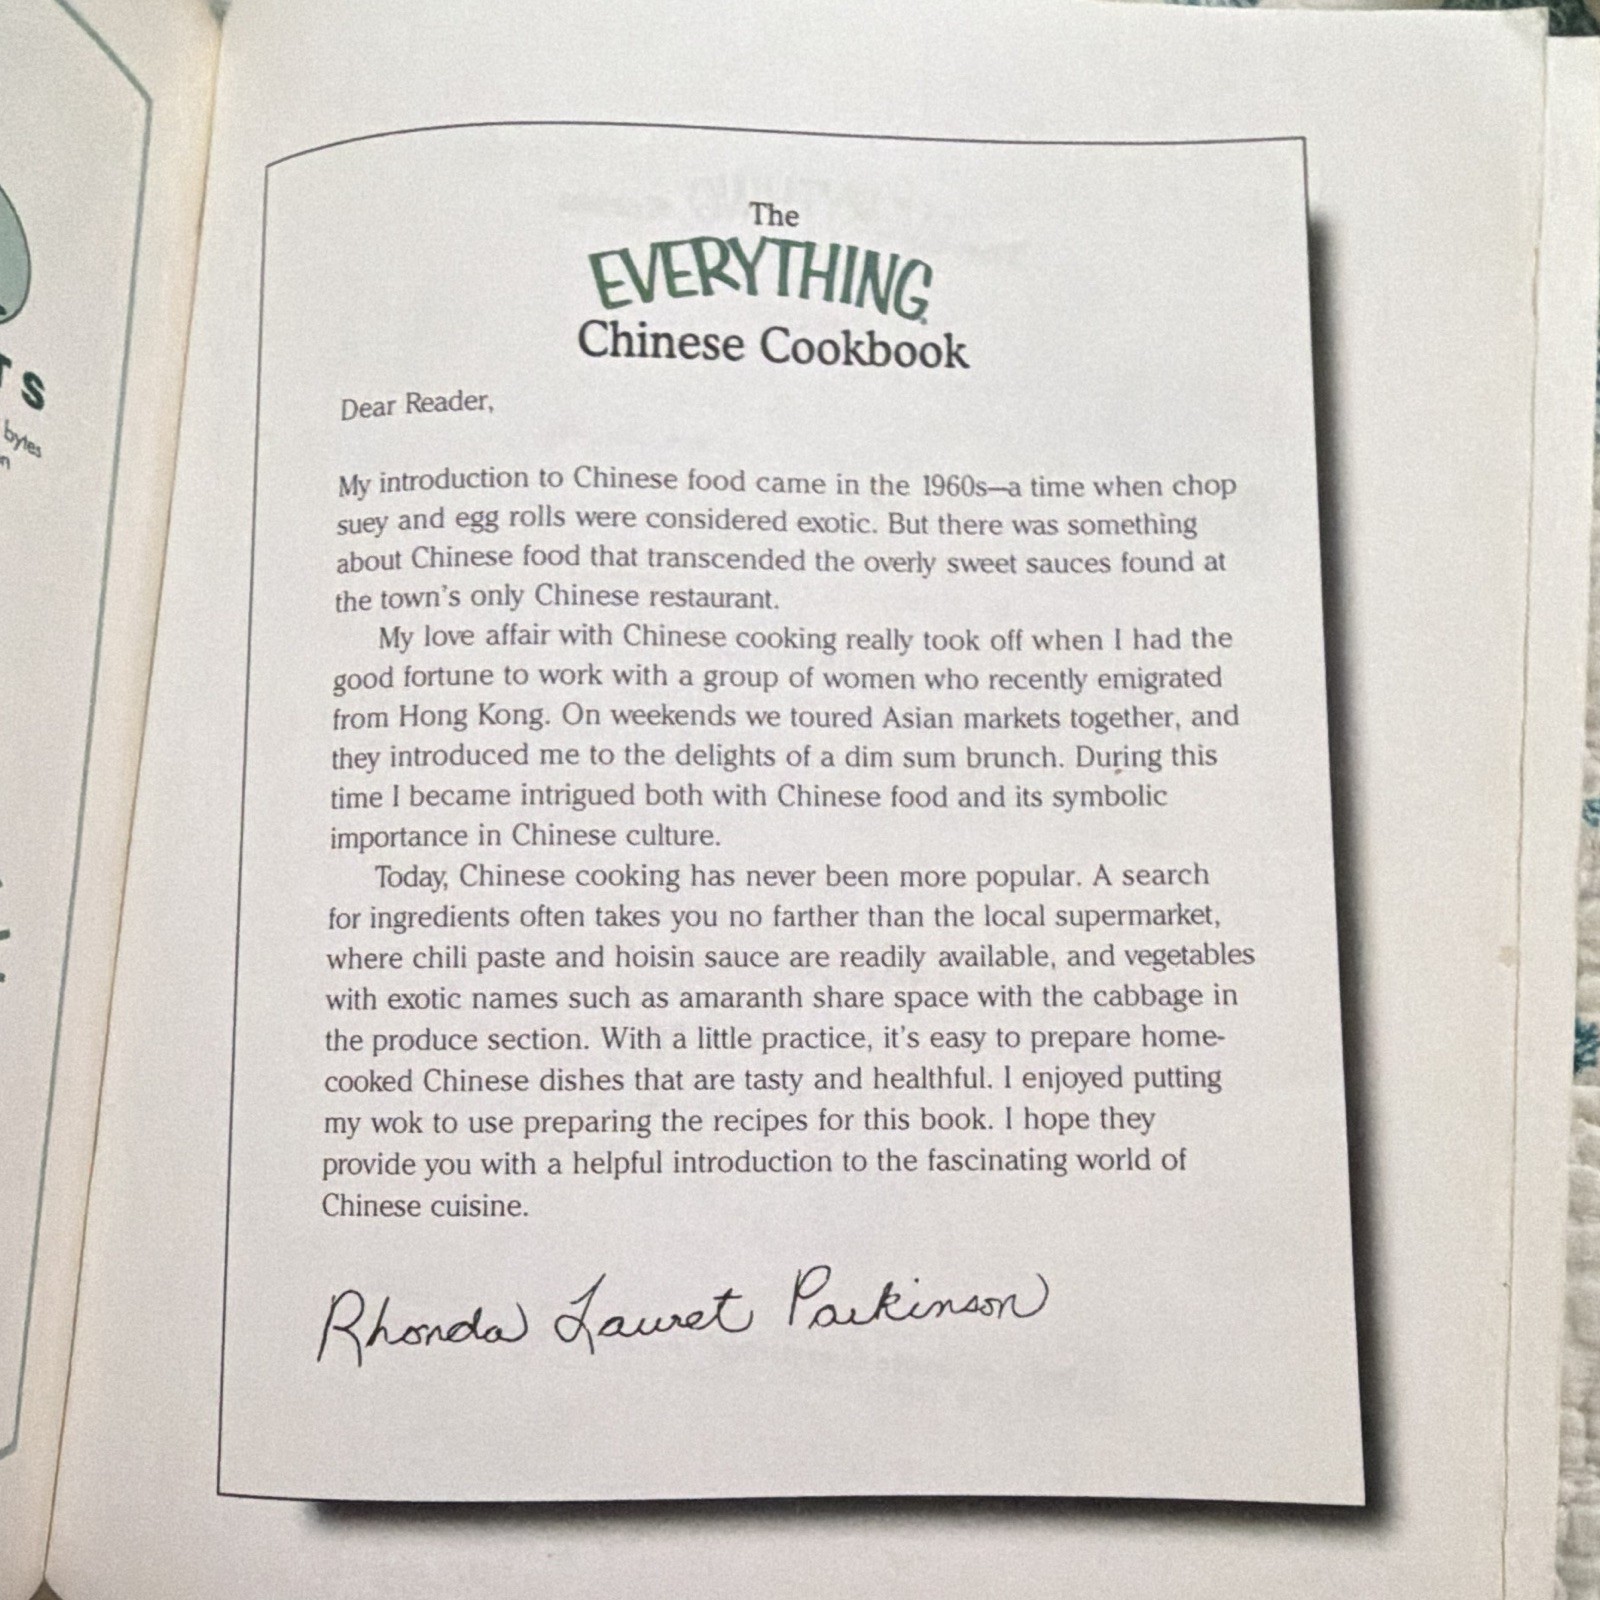 TS
bytes
The
EVERYTHING®
Chinese Cookbook
Dear Reader,
My introduction to Chinese food came in the 1960s—a time when chop
suey and egg rolls were considered exotic. But there was something
about Chinese food that transcended the overly sweet sauces found at
the town's only Chinese restaurant.
My love affair with Chinese cooking really took off when I had the
good fortune to work with a group of women who recently emigrated
from Hong Kong. On weekends we toured Asian markets together, and
they introduced me to the delights of a dim sum brunch. During this
time I became intrigued both with Chinese food and its symbolic
importance in Chinese culture.
Today, Chinese cooking has never been more popular. A search
for ingredients often takes you no farther than the local supermarket,
where chili paste and hoisin sauce are readily available, and vegetables
with exotic names such as amaranth share space with the cabbage in
the produce section. With a little practice, it's easy to prepare home-
cooked Chinese dishes that are tasty and healthful. I enjoyed putting
my wok to use preparing the recipes for this book. I hope they
provide you with a helpful introduction to the fascinating world of
Chinese cuisine.
Rhonda Lauret Parkinson